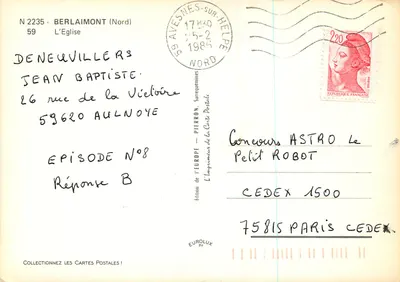 N 2235 - BERLAIMONT (Nord)
59 L'Eglise
DENEUVILLERS
JEAN BAPTISTE.
26 rue de la Victoire
59620 AULNOYE
EPISODE N°8
Réponse B
59 AVESNES-SUR-HELPE
17H30
5-2
1986
NORD
2,20
Edition de l'EUROPE - PIERRON, Sarreguemines
L'Imprimeur de la Carte Postale
EUROLUX
Concours ASTRO le
Petit ROBOT
CEDEX 1500
75815 PARIS CEDEX
COLLECTIONNEZ LES CARTES POSTALES !